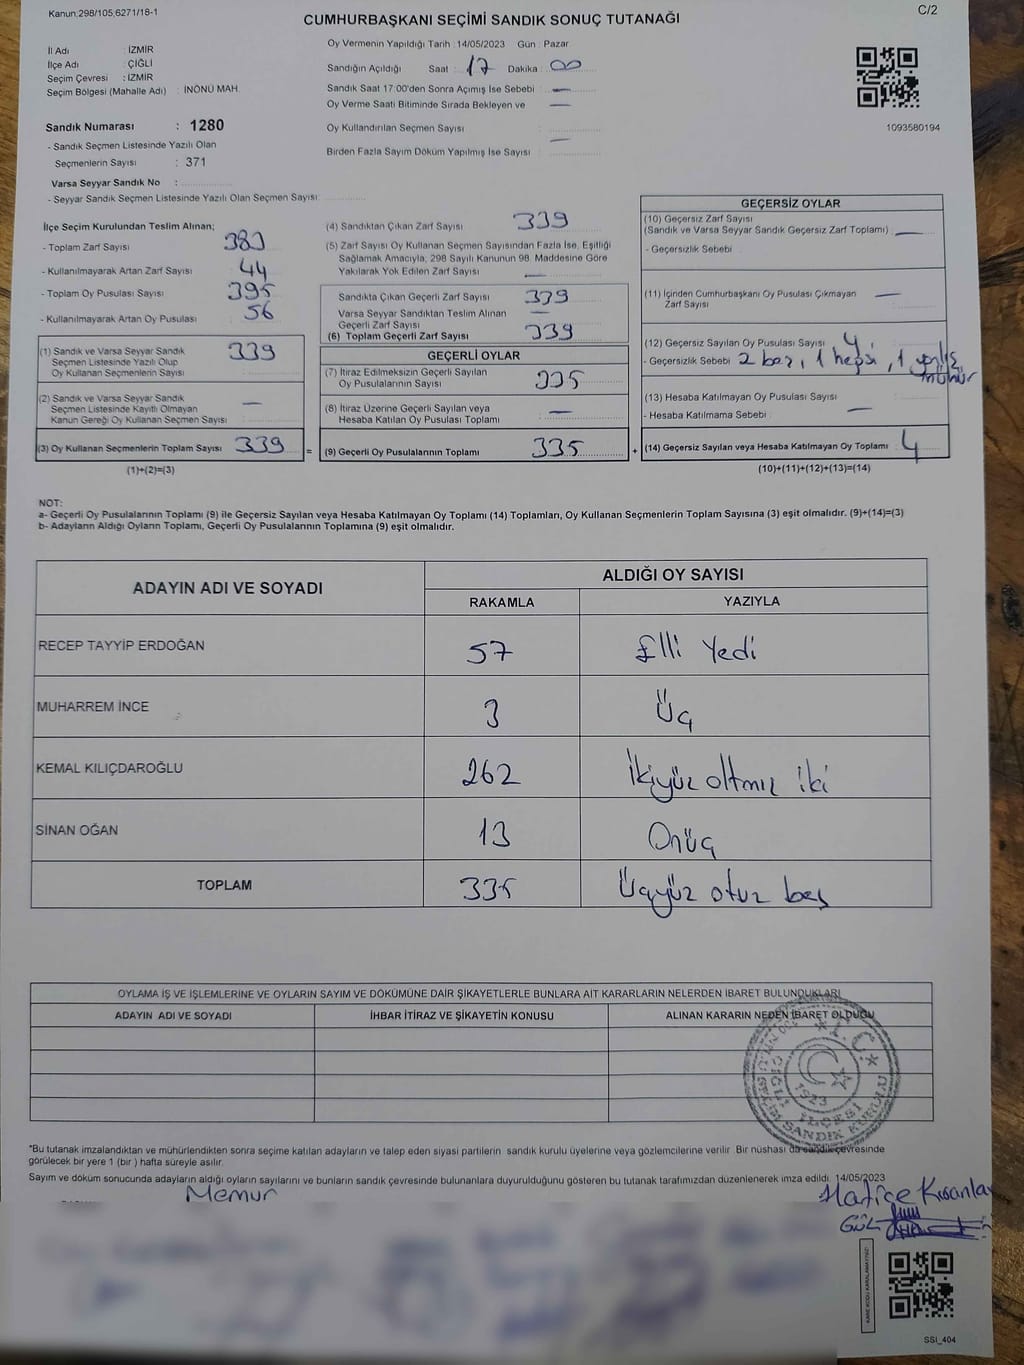 Kanun;298/105,6271/18-1
CUMHURBAŞKANI SEÇİMİ SANDIK SONUÇ TUTANAĞI
C/2
İl Adı : İZMİR
İlçe Adı : ÇİĞLİ
Seçim Çevresi : İZMİR
Seçim Bölgesi (Mahalle Adı) : İNÖNÜ MAH.
Oy Vermenin Yapıldığı Tarih : 14/05/2023 Gün : Pazar
Sandığın Açıldığı Saat : 17 Dakika : 00
Sandık Saat 17:00'den Sonra Açımış İse Sebebi : —
Oy Verme Saati Bitiminde Sırada Bekleyen ve —
Oy Kullandırılan Seçmen Sayısı :
Birden Fazla Sayım Döküm Yapılmış İse Sayısı : —
1093580194
Sandık Numarası : 1280
- Sandık Seçmen Listesinde Yazılı Olan
Seçmenlerin Sayısı : 371
Varsa Seyyar Sandık No :
- Seyyar Sandık Seçmen Listesinde Yazılı Olan Seçmen Sayısı:
İlçe Seçim Kurulundan Teslim Alınan;
- Toplam Zarf Sayısı 383
- Kullanılmayarak Artan Zarf Sayısı 44
- Toplam Oy Pusulası Sayısı 395
- Kullanılmayarak Artan Oy Pusulası 56
(1) Sandık ve Varsa Seyyar Sandık
Seçmen Listesinde Yazılı Olup
Oy Kullanan Seçmenlerin Sayısı 339
(2) Sandık ve Varsa Seyyar Sandık
Seçmen Listesinde Kayıtlı Olmayan
Kanun Gereği Oy Kullanan Seçmen Sayısı —
(3) Oy Kullanan Seçmenlerin Toplam Sayısı 339
(1)+(2)=(3)
(4) Sandıktan Çıkan Zarf Sayısı 339
(5) Zarf Sayısı Oy Kullanan Seçmen Sayısından Fazla İse, Eşitliği
Sağlamak Amacıyla, 298 Sayılı Kanunun 98. Maddesine Göre
Yakılarak Yok Edilen Zarf Sayısı —
Sandıkta Çıkan Geçerli Zarf Sayısı 339
Varsa Seyyar Sandıktan Teslim Alınan
Geçerli Zarf Sayısı —
(6) Toplam Geçerli Zarf Sayısı 339
GEÇERLİ OYLAR
(7) İtiraz Edilmeksizin Geçerli Sayılan
Oy Pusulalarının Sayısı 335
(8) İtiraz Üzerine Geçerli Sayılan veya
Hesaba Katılan Oy Pusulası Toplamı —
= (9) Geçerli Oy Pusulalarının Toplamı 335 +
GEÇERSİZ OYLAR
(10) Geçersiz Zarf Sayısı
(Sandık ve Varsa Seyyar Sandık Geçersiz Zarf Toplamı) —
- Geçersizlik Sebebi :
(11) İçinden Cumhurbaşkanı Oy Pusulası Çıkmayan
Zarf Sayısı —
(12) Geçersiz Sayılan Oy Pusulası Sayısı 4
- Geçersizlik Sebebi : 2 boş, 1 hepsi, 1 yanlış
mühür
(13) Hesaba Katılmayan Oy Pusulası Sayısı :
- Hesaba Katılmama Sebebi : —
(14) Geçersiz Sayılan veya Hesaba Katılmayan Oy Toplamı 4
(10)+(11)+(12)+(13)=(14)
NOT:
a- Geçerli Oy Pusulalarının Toplamı (9) ile Geçersiz Sayılan veya Hesaba Katılmayan Oy Toplamı (14) Toplamları, Oy Kullanan Seçmenlerin Toplam Sayısına (3) eşit olmalıdır. (9)+(14)=(3)
b- Adayların Aldığı Oyların Toplamı, Geçerli Oy Pusulalarının Toplamına (9) eşit olmalıdır.
ADAYIN ADI VE SOYADI
ALDIĞI OY SAYISI
RAKAMLA YAZIYLA
RECEP TAYYİP ERDOĞAN 57 Elli Yedi
MUHARREM İNCE 3 Üç
KEMAL KILIÇDAROĞLU 262 İkiyüz altmış iki
SİNAN OĞAN 13 Onüç
TOPLAM 335 Üçyüz otuz beş
OYLAMA İŞ VE İŞLEMLERİNE VE OYLARIN SAYIM VE DÖKÜMÜNE DAİR ŞİKAYETLERLE BUNLARA AİT KARARLARIN NELERDEN İBARET BULUNDUKLARI
ADAYIN ADI VE SOYADI İHBAR İTİRAZ VE ŞİKAYETİN KONUSU ALINAN KARARIN NEDEN İBARET OLDUĞU
T.C.
ÇİĞLİ İLÇESİ
1923
SEÇİM SANDIK KURULU
*Bu tutanak imzalandıktan ve mühürlendikten sonra seçime katılan adayların ve talep eden siyasi partilerin sandık kurulu üyelerine veya gözlemcilerine verilir. Bir nüshası da sandık çevresinde
görülecek bir yere 1 (bir ) hafta süreyle asılır.
Sayım ve döküm sonucunda adayların aldığı oyların sayılarını ve bunların sandık çevresinde bulunanlara duyurulduğunu gösteren bu tutanak tarafımızdan düzenlenerek imza edildi. 14/05/2023
Memur
Hatice
GÜL
KARE KODU KARALAMAYINIZ!
SSI_404